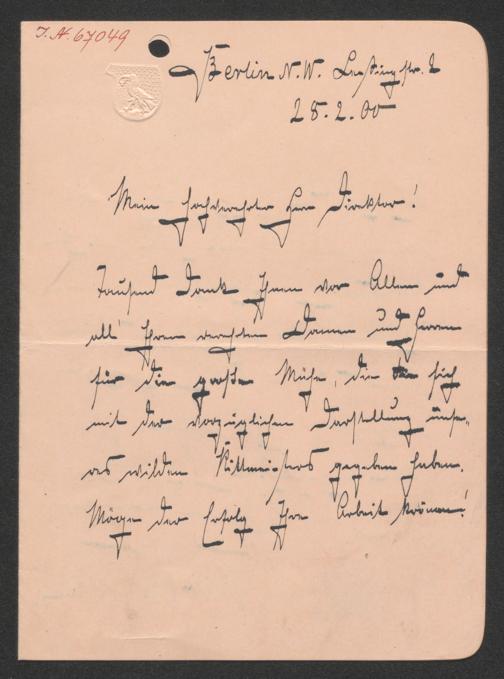 I.N. 67049
Berlin N.W. Lessingstr. 2
28.2.00
Mein hochverehrter Herr Direktor!
Tausend Dank Ihnen vor Allem und
all' Ihren verehrten Damen und Herren
für die große Mühe, die sie sich
mit der vorzüglichen Darstellung unse-
res wilden Rittmeisters gegeben haben.
Möge der Erfolg Ihre Arbeit krönen!